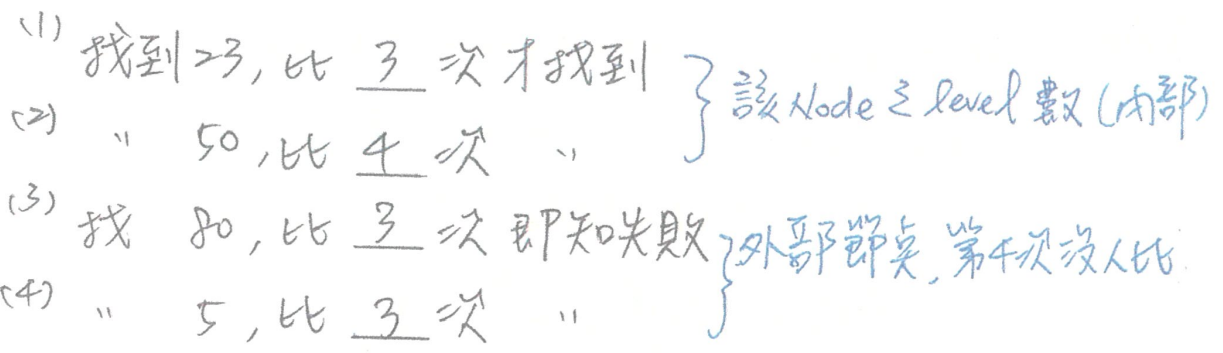 (1) 找到23, 比 3 次才找到
(2) " 50, 比 4 次 "
} 該Node之level數(內部)
(3) 找 80, 比 3 次即知失敗
(4) " 5, 比 3 次 "
} 外部節點, 第4次沒人比